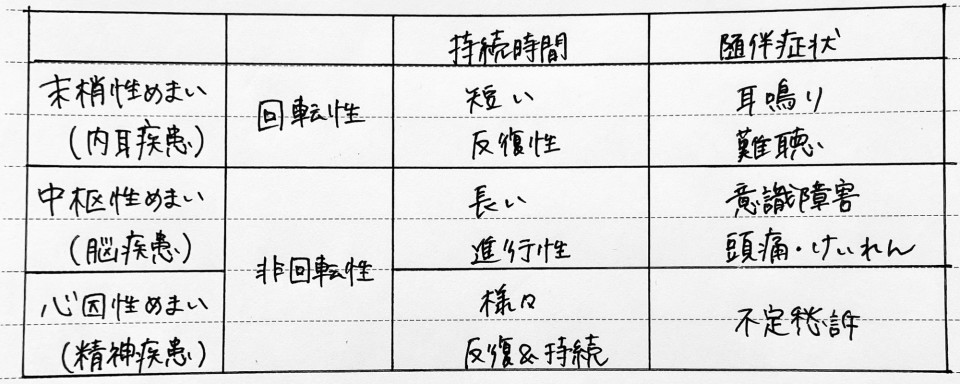 持続時間 随伴症状
末梢性めまい 回転性 短い 耳鳴り
(内耳疾患) 反復性 難聴
中枢性めまい 非回転性 長い 意識障害
(脳疾患) 進行性 頭痛・けいれん
心因性めまい 様々 不定愁訴
(精神疾患) 反復&持続